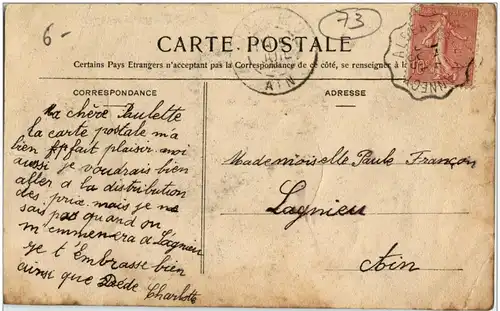 6-
73
CARTE POSTALE
Certains Pays Etrangers n'acceptant pas la Correspondance de ce côté, se renseigner à la
CORRESPONDANCE
ADRESSE
AIN
Ma chère Paulette
la carte postale m'a
bien fait plaisir moi
aussi je voudrais bien
aller a la distribution
des prix mais je ne
sais pas quand on
m'emmenera a Lagnieu
je t'Embrasse bien
ainsi que Dédé Charlotte
Mademoiselle Paule Françon
Lagnieu
Ain